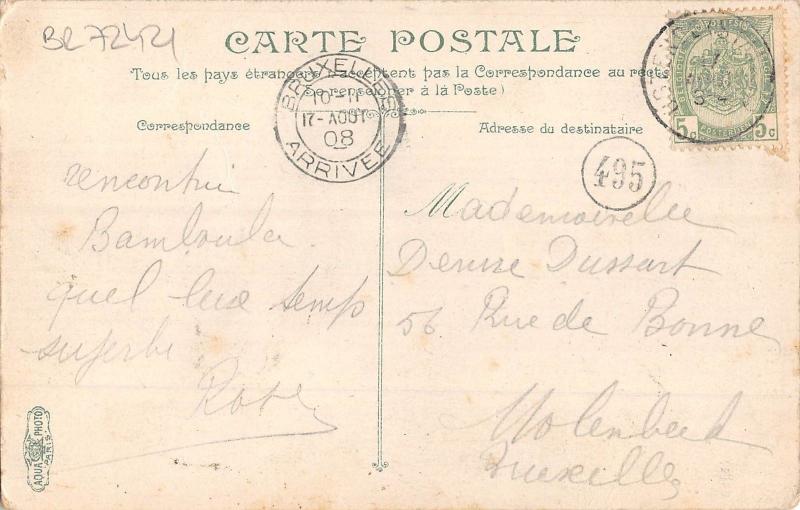 BR 72421
CARTE POSTALE
Tous les pays étrangers n'acceptent pas la Correspondance au recto
(Se renseigner à la Poste)
BRUXELLES
10-11
17-AOUT
08
ARRIVÉE
5c 5c
Correspondance
Adresse du destinataire
495
rencontrer
Bamboula
quel luxe temp
superbe
Rose
Mademoiselle
Denise Dussart
56 Rue de Bonne
Molenbeek
Bruxelles
AQUA PHOTO
PARIS